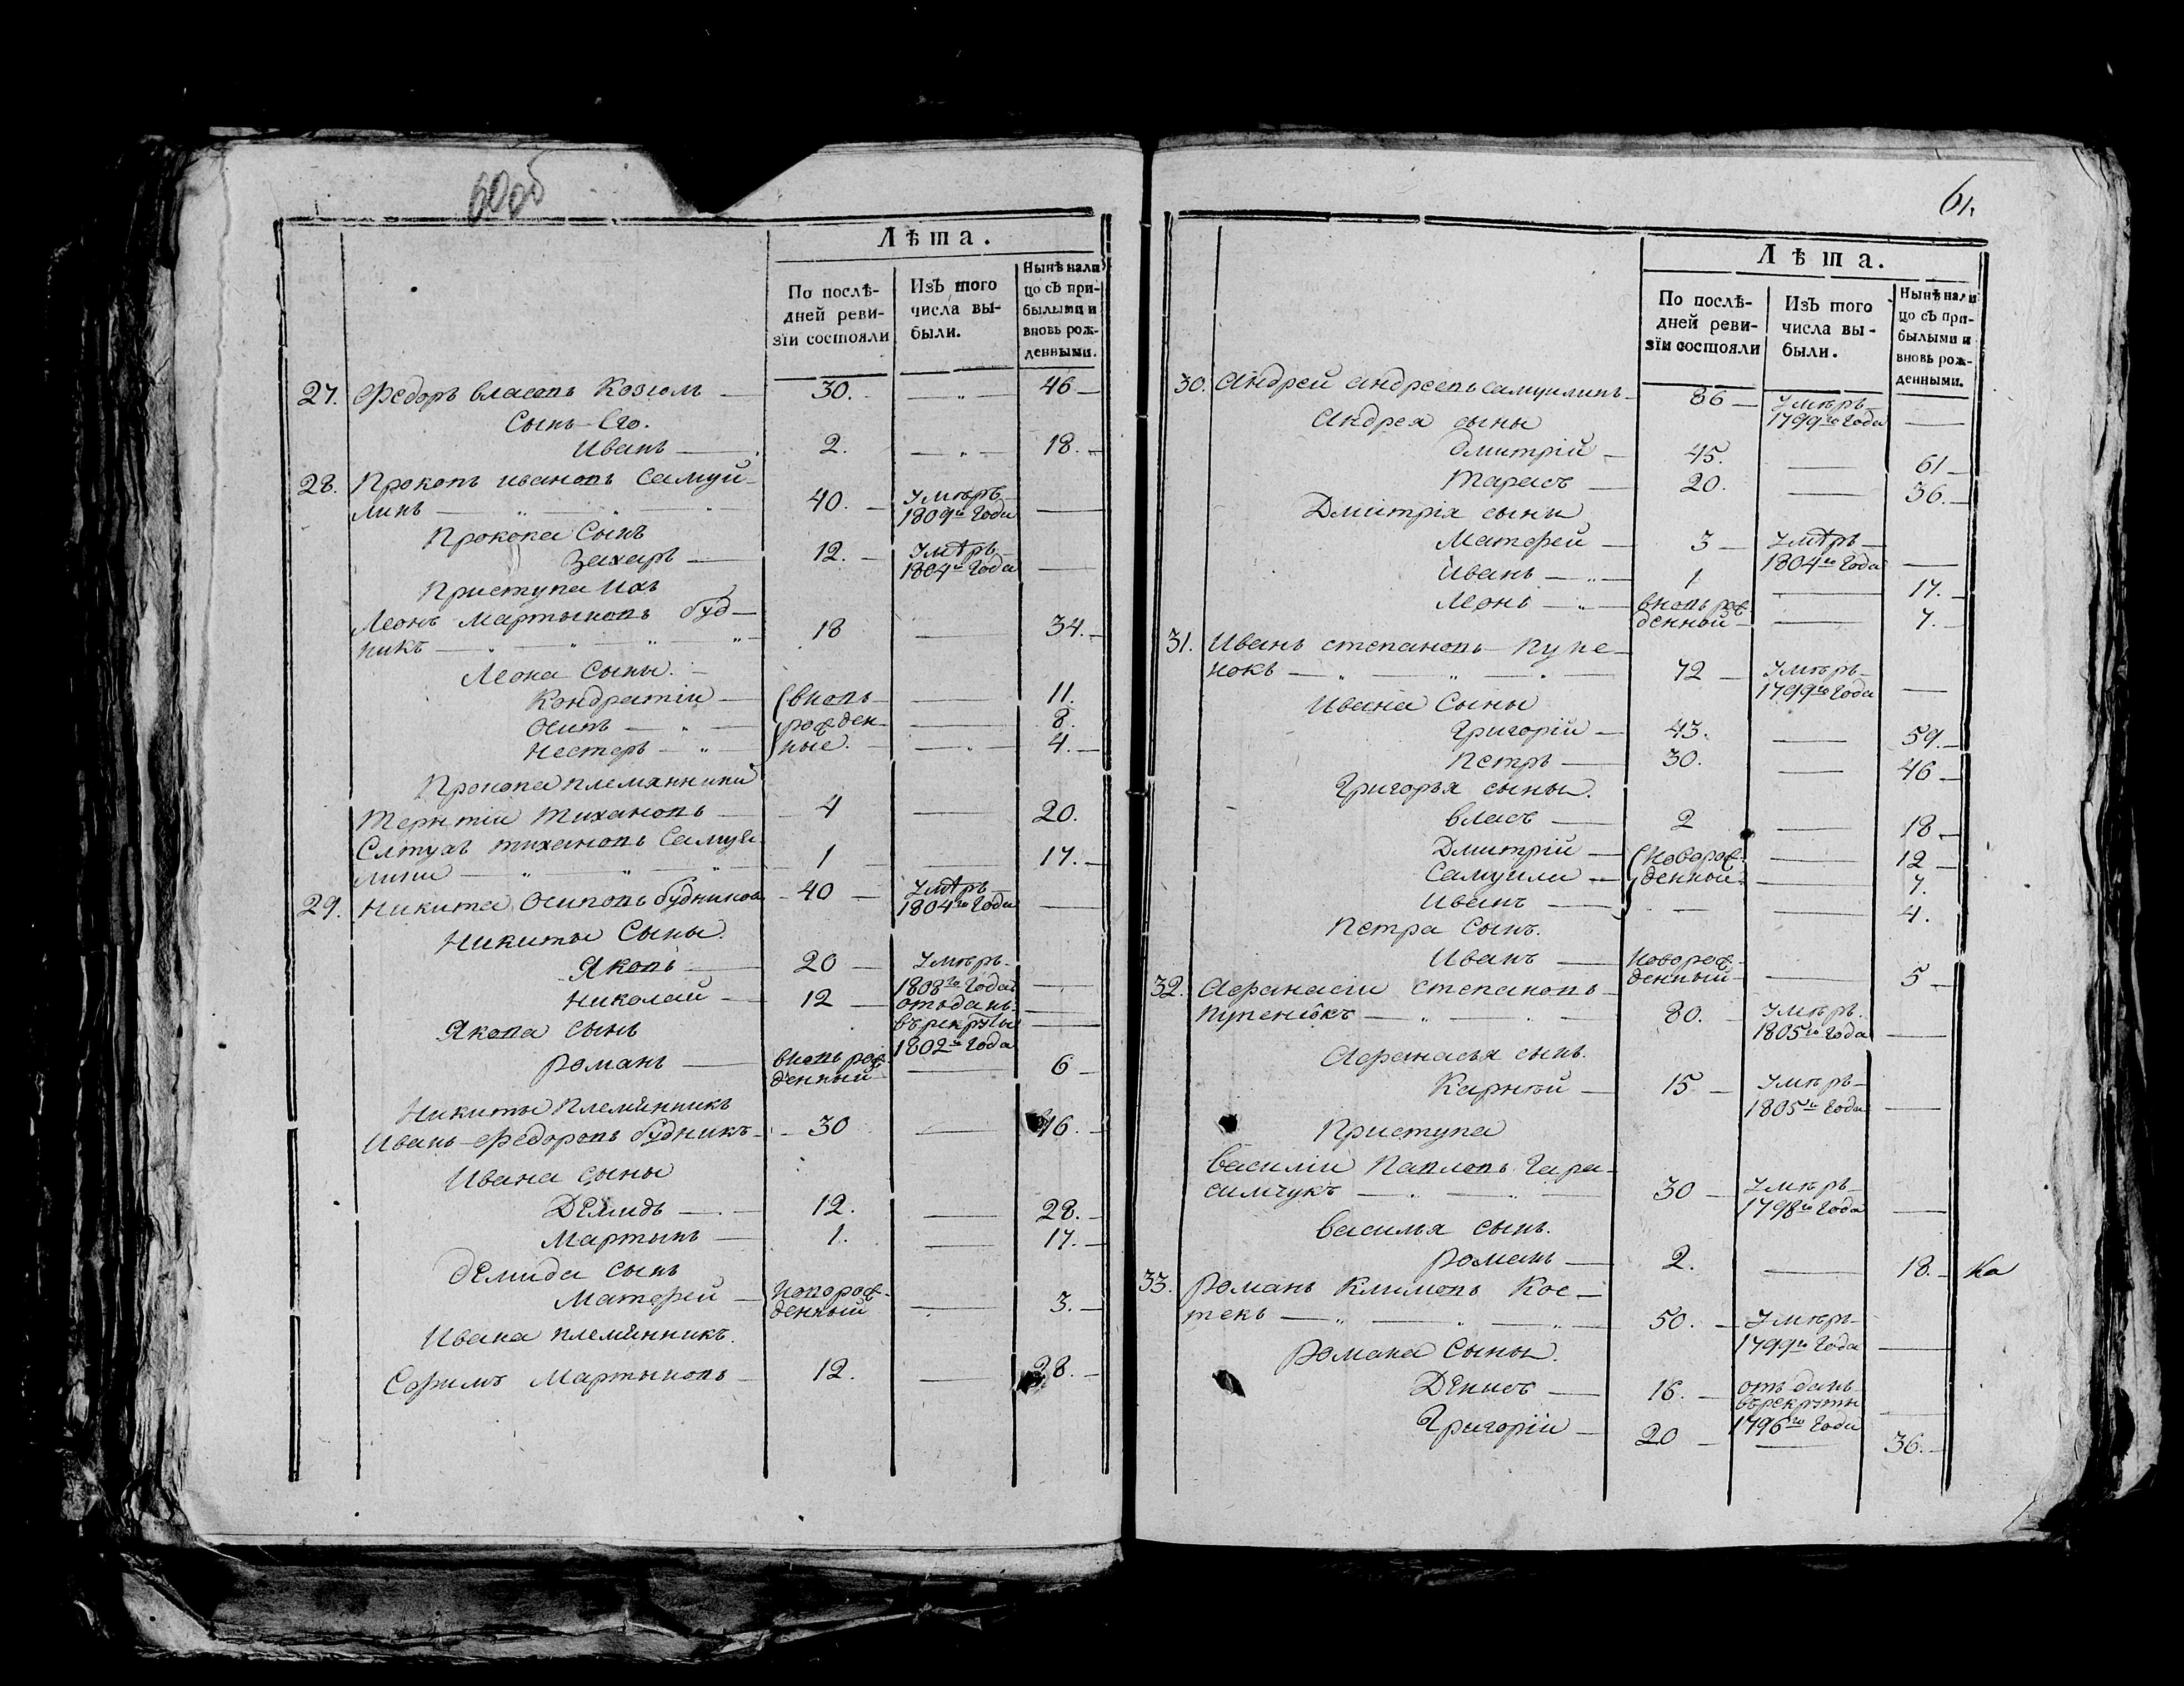 60об
Лѣта.
По послѣдней ревизіи состояли
Изъ того числа выбыли.
Нынѣ налицо съ прибылыми и вновь рожденными.
27. Федоръ власовъ Козюль — 30. — 46
Сынъ Его.
Иванъ — 2. — 18.
28. Прокопъ ивановъ Самуй-
линъ — 40. — Умѣръ 1809го Года —
Прокопа Сынъ
Захаръ — 12. — Умѣръ 1804го Года —
Приступа Ихъ
Леонъ Мартыновъ буд-
никъ — 18 — 34.
Леона Сыны.
Кондратій — (вновь — 11.
Осипъ — рожден- — 8.
Нестеръ — ные. — 4.
Прокопа племянники
Терентій Тихановъ — 4 — 20.
тихановъ Самуй-
лини — 1 — 17.
29. Никита Осиповъ будниковъ — 40 — Умѣръ 1804го Года —
Никиты Сыны.
Яковъ — 20 — Умѣръ 1808го Года —
Николай — 12 — отъданъ въ рекруты 1802го Года —
Якова сынъ
Романъ — вновь рожденный — 6
Никиты Племянникъ
Иванъ Федоровъ будникъ — 30 — 46.
Ивана сыны
Демидъ — 12. — 28.
Мартынъ — 1. — 17.
Демида сынъ
Матфей — новорожденный — 3.
Ивана племянникъ.
Мартыновъ — 12. — 28.
61.
Лѣта.
По послѣдней ревизіи состояли
Изъ того числа выбыли.
Нынѣ налицо съ прибылыми и вновь рожденными.
30. Андрей андреевъ самуилинъ — 86 — Умѣръ 1799го Года —
Андрея сыны
Дмитрій — 45. — 61
Тарасъ — 20. — 36.
Дмитрія сыны
Матфей — 3 — Умѣръ 1804го Года —
Иванъ — 1 — 17.
Леонъ — вновь рожденной — 7.
31. Иванъ степановъ Пупе-
нокъ — 72 — Умѣръ 1799го Года —
Ивана Сыны
Григорій — 43. — 59.
Петръ — 30. — 46
Григорья сыны.
власъ — 2 — 18
Дмитрій — (Новорож- — 12
Самуили — денной. — 7.
Иванъ — 4.
Петра Сынъ.
Иванъ — новорожденный — 5
32. Афанасіи степановъ
Пупенокъ — 80. — Умѣръ. 1805го Года —
Афанасья сынъ.
Карнѣй — 15 — Умѣръ 1805го Года —
Приступа
Василіи Павловъ Гара-
симчукъ — 30 — Умѣръ 1798го Года —
Василья сынъ.
Романъ — 2. — 18. Ка
33. Романъ Климовъ Кос-
текъ — 50. — Умѣръ 1799го Года —
Романа Сыны.
Денисъ — 16. — отъданъ въ рекруты 1796го Года —
Григоріи — 20 — 36.